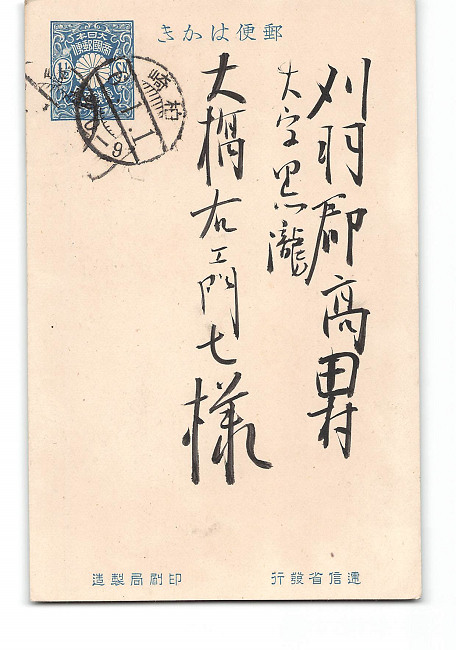 郵便はかき
大日本
帝國郵便
柏崎
刈羽郡高田村
大字黒瀧
大橋右エ門七様
遞信省發行
印刷局製造